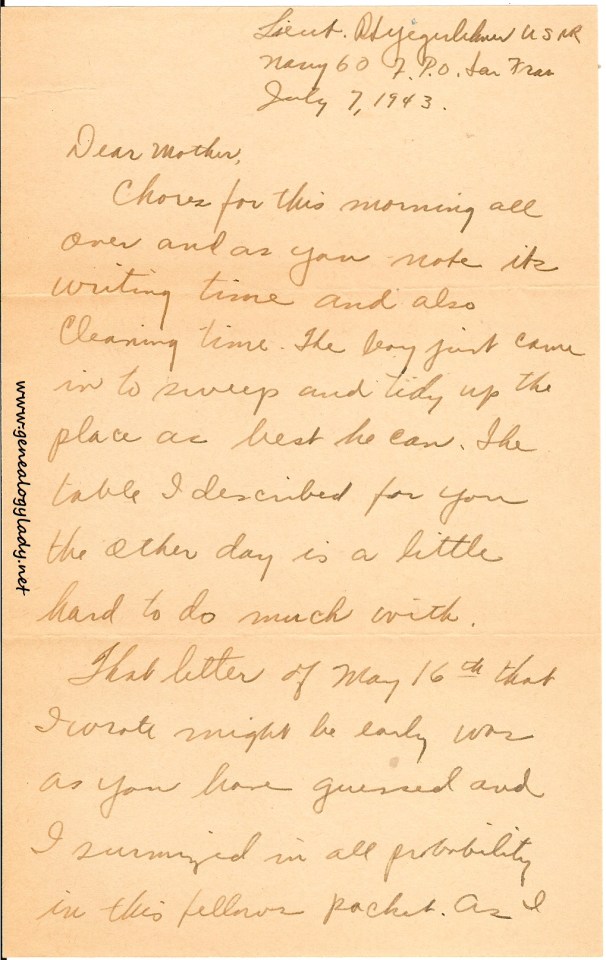 Lieut. R Yegerlehner USNR
Navy 60 F.P.O. San Fran
July 7, 1943.
Dear Mother,
Chores for this morning all
over and as you note its
writing time and also
cleaning time. The boy just came
in to sweep and tidy up the
place as best he can. The
table I described for you
the other day is a little
hard to do much with.
That letter of May 16th that
I wrote might be early was
as you have guessed and
I surmized in all probability
in this fellows pocket. As I
www.genealogylady.net